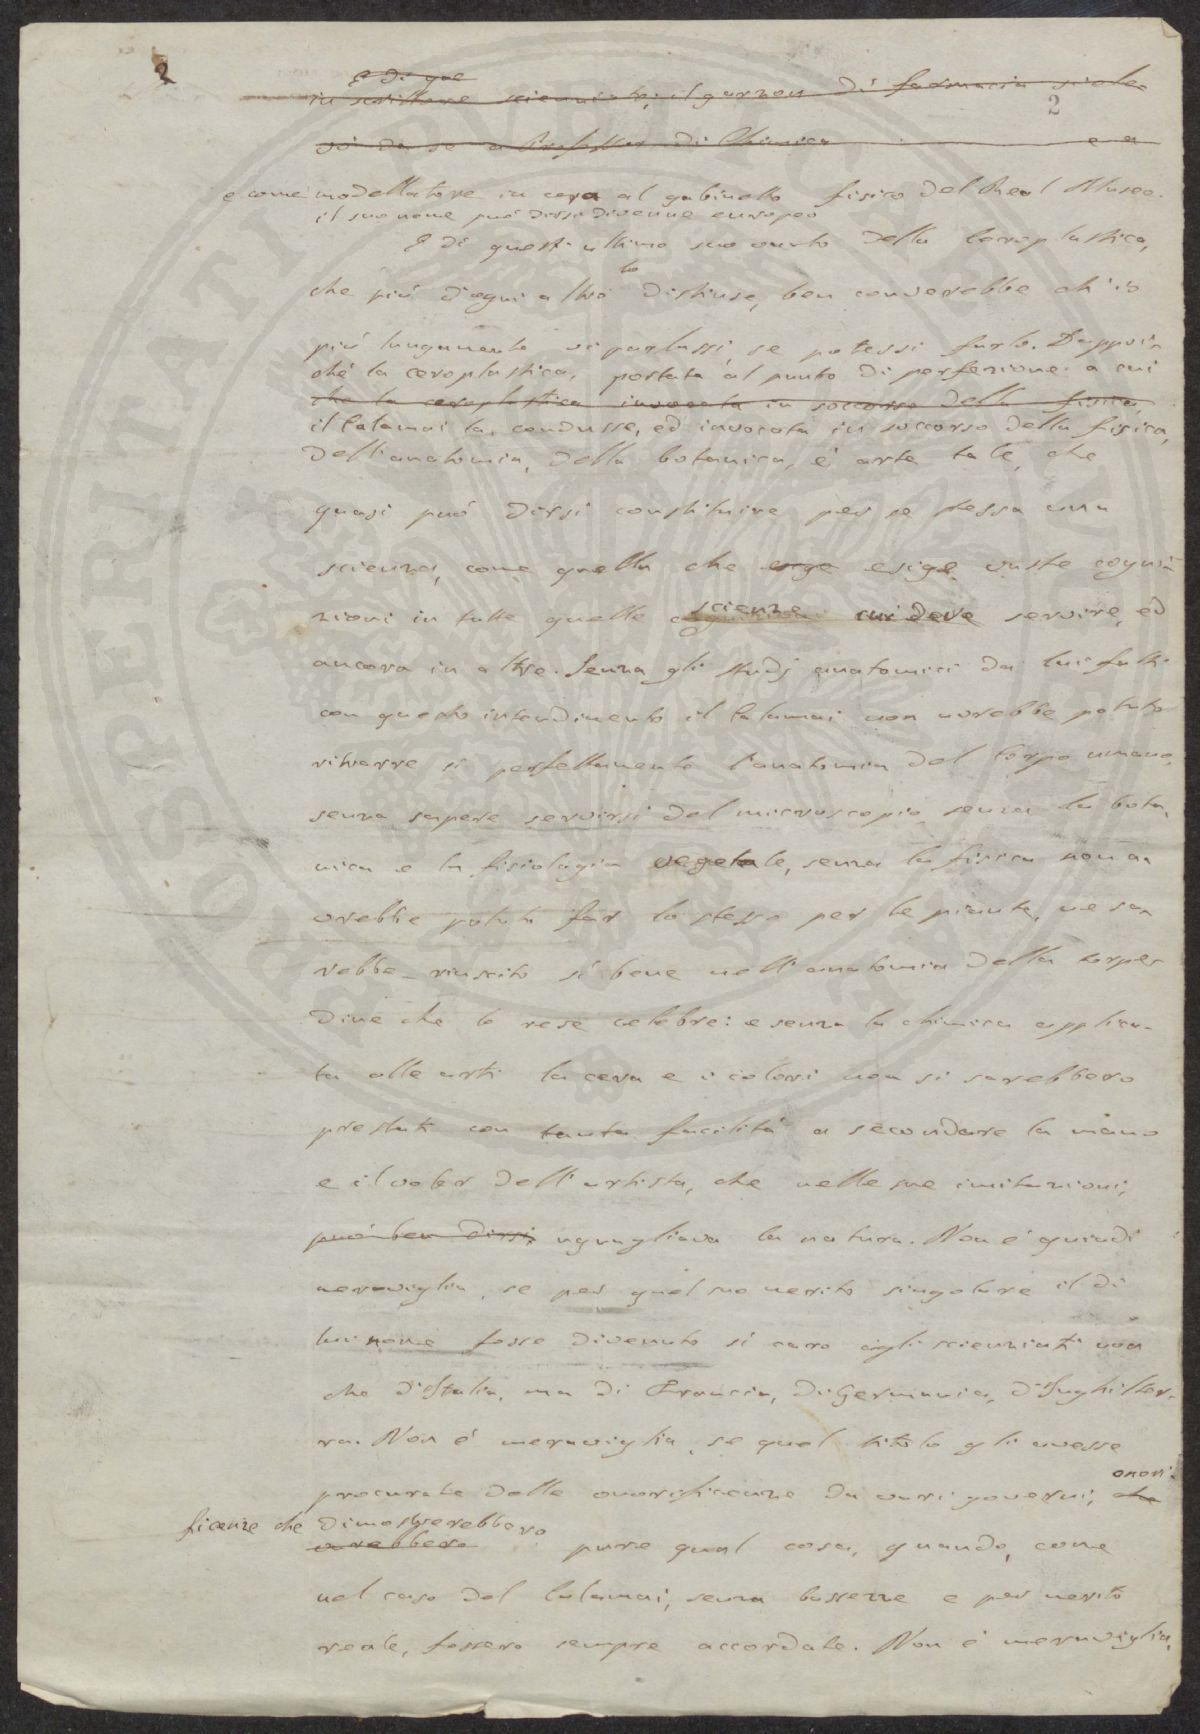 2
E di que
in scrittore scienziato; il garzon di farmacia si ole-
2
vò da se a Professor di Chimica e a
e come modellatore in cera al gabinetto fisico del Real Museo.
il suo nome può dirsi divenne europeo
E di questi ultimo suo vanto della Ceroplastica,
che più d'ogni altro lo distinse, ben converrebbe ch'io
più lungamente vi parlassi, se potessi farlo. Dappoi-
chè la ceroplastica, portata al punto di perfezione a cui
che la ceroplastica invocata in soccorso della fisica,
il Calamai la condusse, ed invocata in soccorso della fisica,
dell'anatomia, della botanica, è arte tale, che
quasi può dirsi constituire per se stessa una
scienza, come quella che esige vaste cogni-
zioni in tutte quelle scienze cui deve servire, ed
ancora in altre. Senza gli studj anatomici da lui fatti
con questo intendimento il Calamai non avrebbe potuto
ritrarre sì perfettamente l'anatomia del Corpo umano,
senza sapere servirsi del microscopio, senza la bota-
nica e la fisiologia vegetale, senza la fisica non a-
vrebbe potuto far lo stesso per le piante, ne sa-
rebbe riuscito sì bene nell'anatomia della torpe-
dine che lo rese celebre: e senza la chimica applica-
ta alle arti la cera e i colori non si sarebbero
prestati con tanta facilità a secondare la mano
e il voler dell'artista, che nelle sue imitazioni,
può ben dirsi, uguagliava la natura. Non è quindi
meraviglia, se per quel suo merito singolare il di
lui nome fosse divenuto sì caro agli scienziati non
che d'Italia, ma di Francia, di Germania, d'Inghilter-
ra. Non è meraviglia, se quel titolo gli avesse
procurate delle onorificenze da varj governi, che onori-
ficenze che dimostrerebbero
avrebbero pure qual cosa, quando, come
nel caso del Calamai, senza bassezze e per merito
reale, fossero sempre accordate. Non è meraviglia,